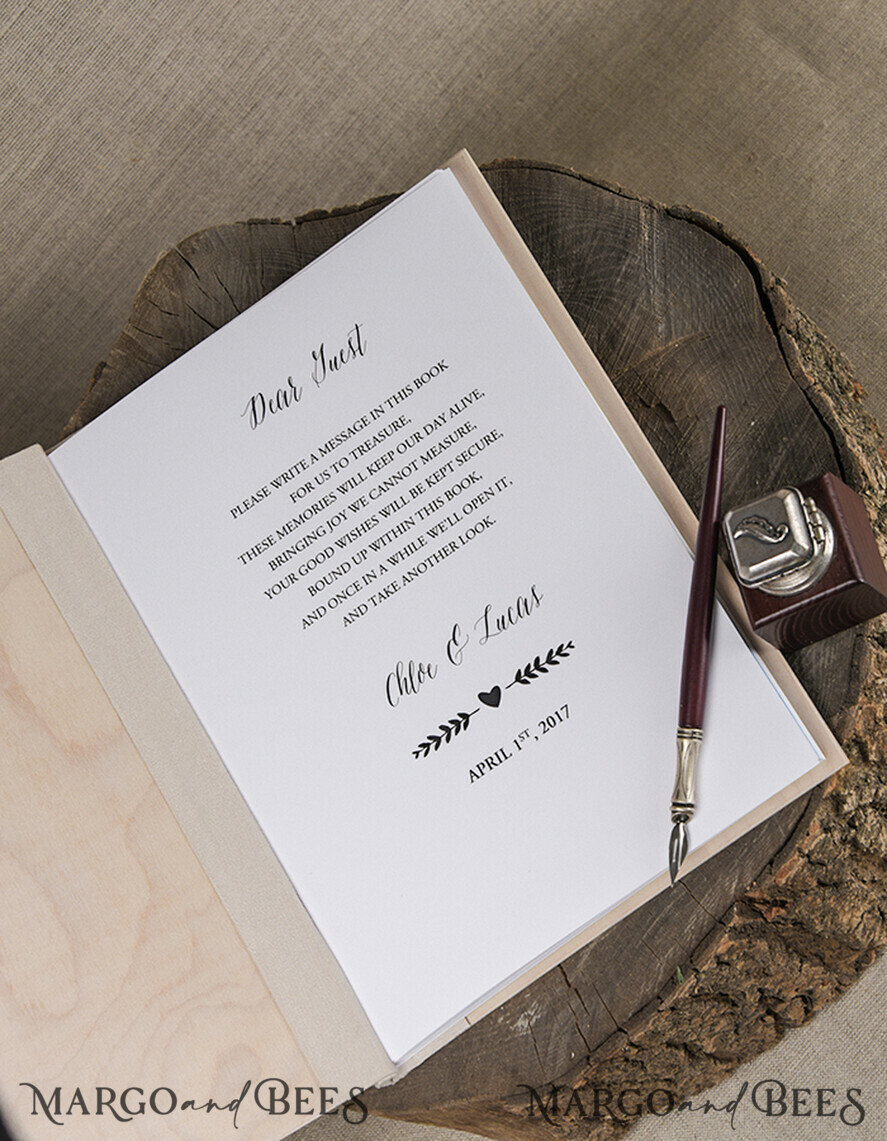 Dear Guest
PLEASE WRITE A MESSAGE IN THIS BOOK
FOR US TO TREASURE,
THESE MEMORIES WILL KEEP OUR DAY ALIVE,
BRINGING JOY WE CANNOT MEASURE,
YOUR GOOD WISHES WILL BE KEPT SECURE,
BOUND UP WITHIN THIS BOOK,
AND ONCE IN A WHILE WE'LL OPEN IT,
AND TAKE ANOTHER LOOK.
Chloe & Lucas
APRIL 1ST, 2017
MARGO and BEES
MARGO and BEES